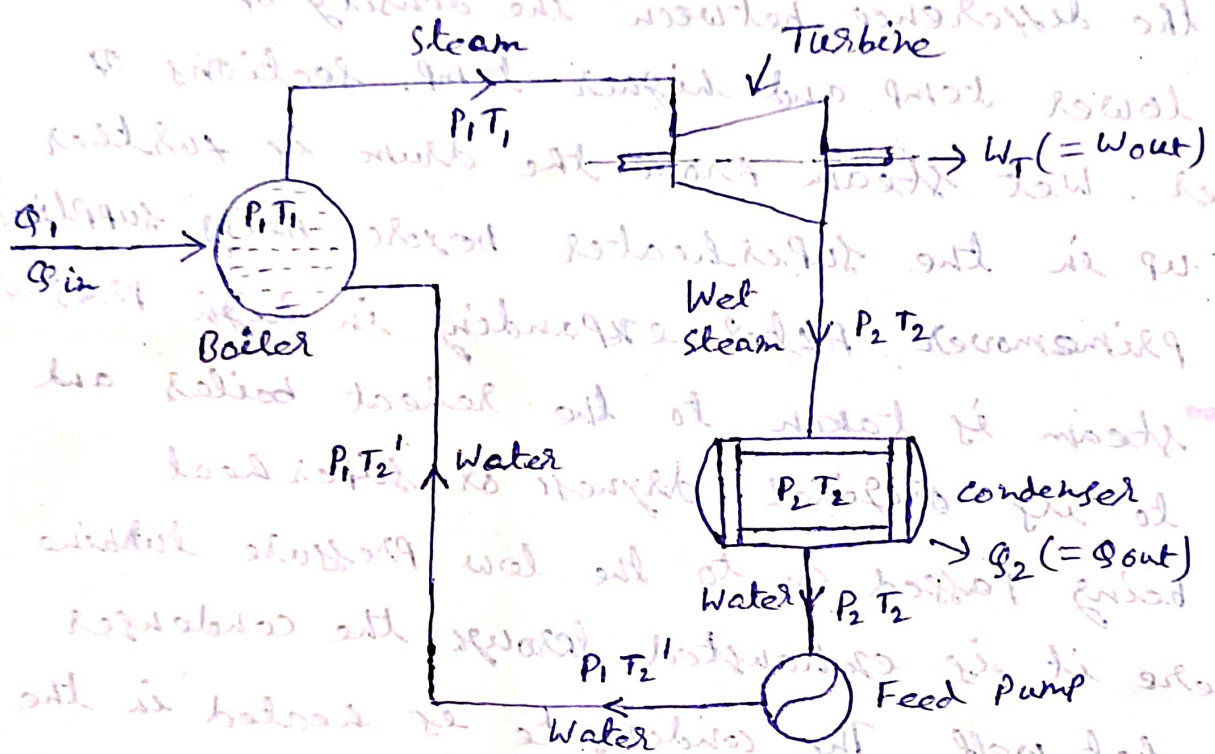 Steam
Turbine
P₁ T₁
W_T (= W out)
Q₁
Q in
P₁ T₁
Boiler
Wet
steam
P₂ T₂
P₁ T₂'
Water
P₂ T₂
condenser
Q₂ (= Q out)
Water
P₂ T₂
P₁ T₂'
Feed Pump
Water